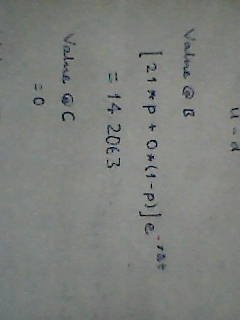 u - d
Value @ B
[21*p + 0*(1-p)]e^-rδt
= 14.2063
Value @ C
= 0